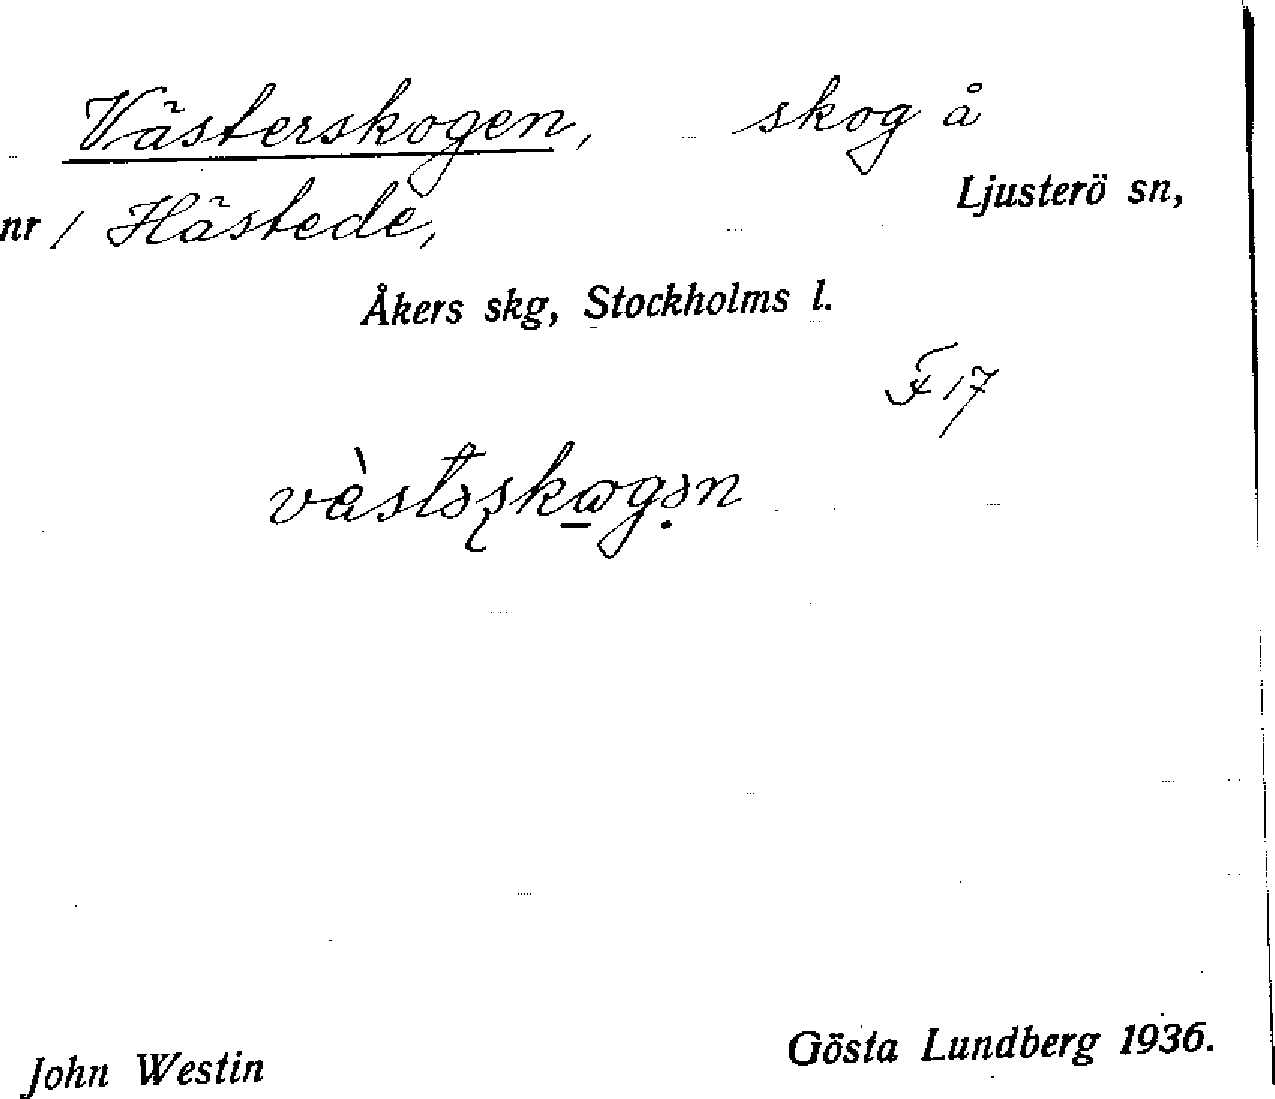 Västerskogen, skog å
Ljusterö sn,
nr 1 Hästede,
Åkers skg, Stockholms l.
F 17
John Westin
Gösta Lundberg 1936.